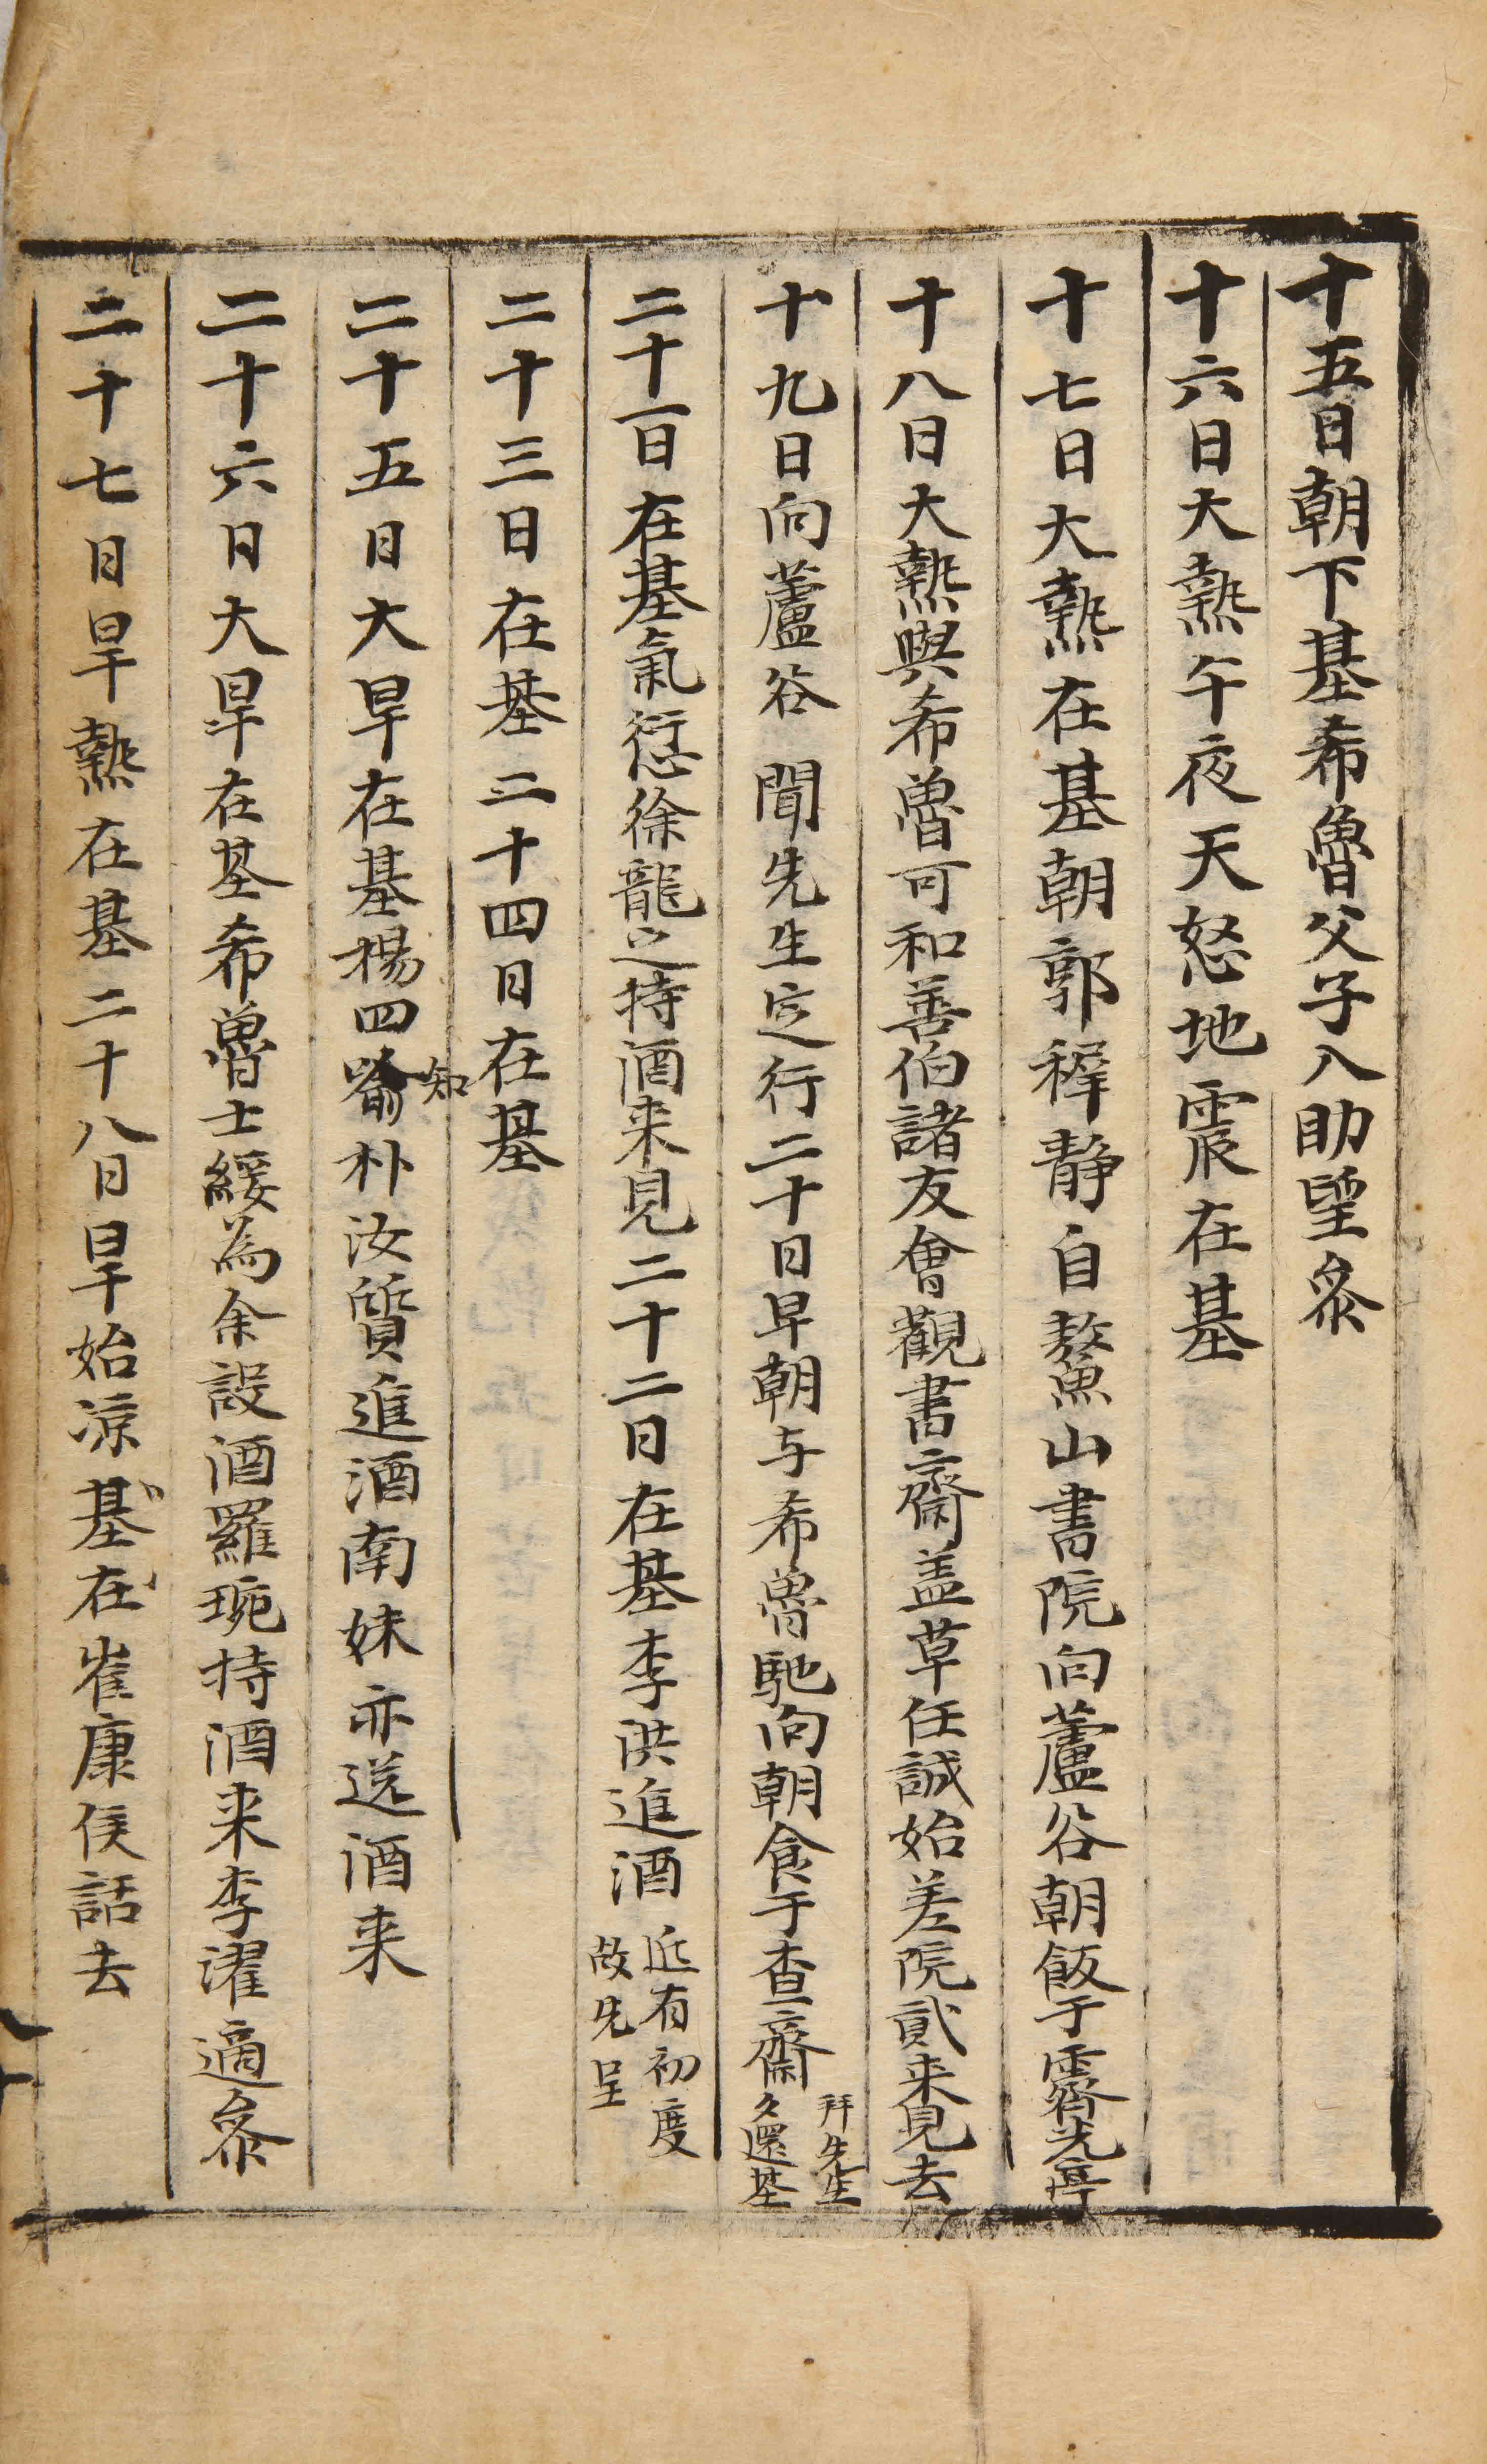 十五日朝下基希魯父子入助望叅
十六日大熱午夜天怒地震在基
十七日大熱在基朝郭穉靜自鰲山書院向蘆谷朝飯于霽光亭
十八日大熱與希魯可和善伯諸友會觀書齋盖草任誠始差院貳来見去
十九日向蘆谷聞先生定行二十日早朝与希魯馳向朝食于查齋拜先生夕還基
二十一日在基氣愆徐龍之持酒来見二十二日在基李洪進酒近有初度故先呈
二十三日在基二十四日在基
二十五日大旱在基楊四知朴汝質進酒南妹亦送酒来
二十六日大旱在基希魯士綏為余設酒羅琬持酒来李濯適叅
二十七日旱熱在基二十八日旱始凉基在崔康侯話去